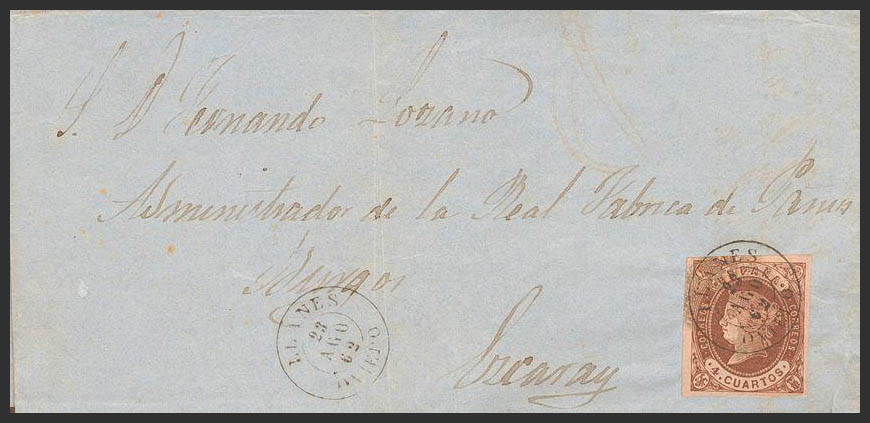 S. D Fernando Lozano
Administrador de la Real Fabrica de Paños
Burgos
Ezcaray
LLANES
23
AGO
62
OVIEDO
LLANES
AGO
CORREOS
4 CUARTOS